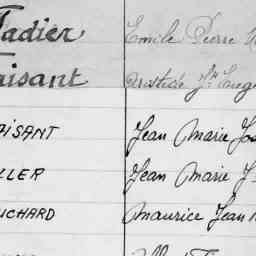 Tadier Emile Pierre
aisant Aristide Jh Eug
AISANT Jean Marie Jos
LLER Jean Marie J
UCHARD Maurice Jean